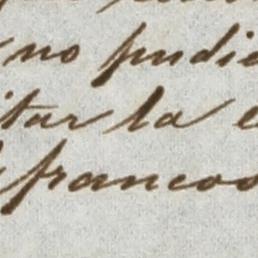 no pudie
itar la
francos